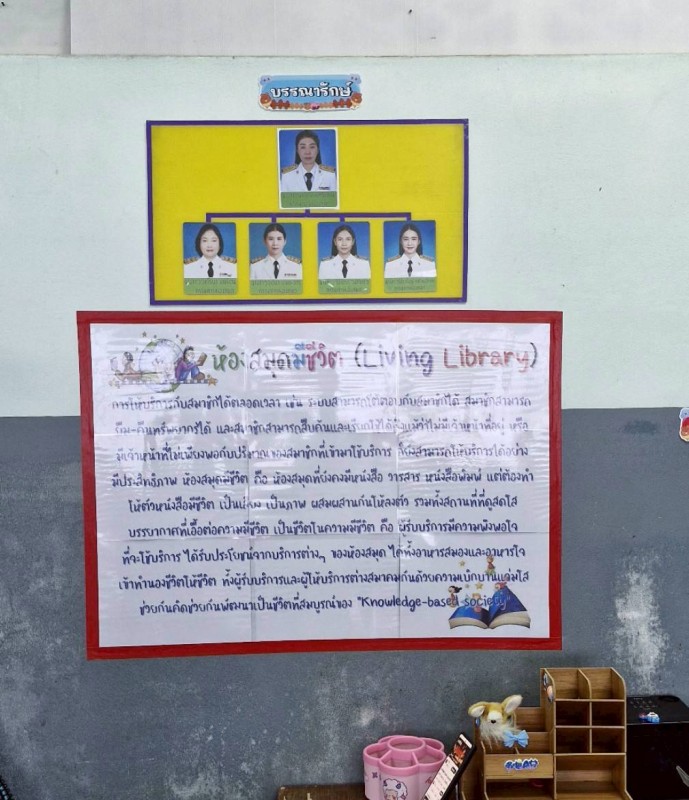 บรรณารักษ์
ห้องสมุดมีชีวิต (Living Library)
การให้บริการกับสมาชิกได้ตลอดเวลา เช่น ระบบสามารถโต้ตอบกับสมาชิกได้ สมาชิกสามารถ
ยืม-คืนทรัพยากรได้ และสมาชิกสามารถสืบค้นและเรียกใช้ได้ถึงแม้ว่าไม่มีเจ้าหน้าที่อยู่ หรือ
มีเจ้าหน้าที่ไม่เพียงพอกับปริมาณของสมาชิกที่เข้ามาใช้บริการ ก็ยังสามารถให้บริการได้อย่าง
มีประสิทธิภาพ ห้องสมุดมีชีวิต คือ ห้องสมุดที่ยังคงมีหนังสือ วารสาร หนังสือพิมพ์ แต่ต้องทำ
ให้ตัวหนังสือมีชีวิต เป็นเสียง เป็นภาพ ผสมผสานกันให้ลงตัว รวมทั้งสถานที่ที่ดูสดใส
บรรยากาศที่เอื้อต่อความมีชีวิต เป็นชีวิตในความมีชีวิต คือ ผู้รับบริการมีความพึงพอใจ
ที่จะใช้บริการ ได้รับประโยชน์จากบริการต่างๆ ของห้องสมุด ได้ทั้งอาหารสมองและอาหารใจ
เข้าทำนองชีวิตให้ชีวิต ทั้งผู้รับบริการและผู้ให้บริการต่างสมาคมกันด้วยความเบิกบานแจ่มใส
ช่วยกันคิดช่วยกันพัฒนาเป็นชีวิตที่สมบูรณ์ของ "Knowledge-based society"